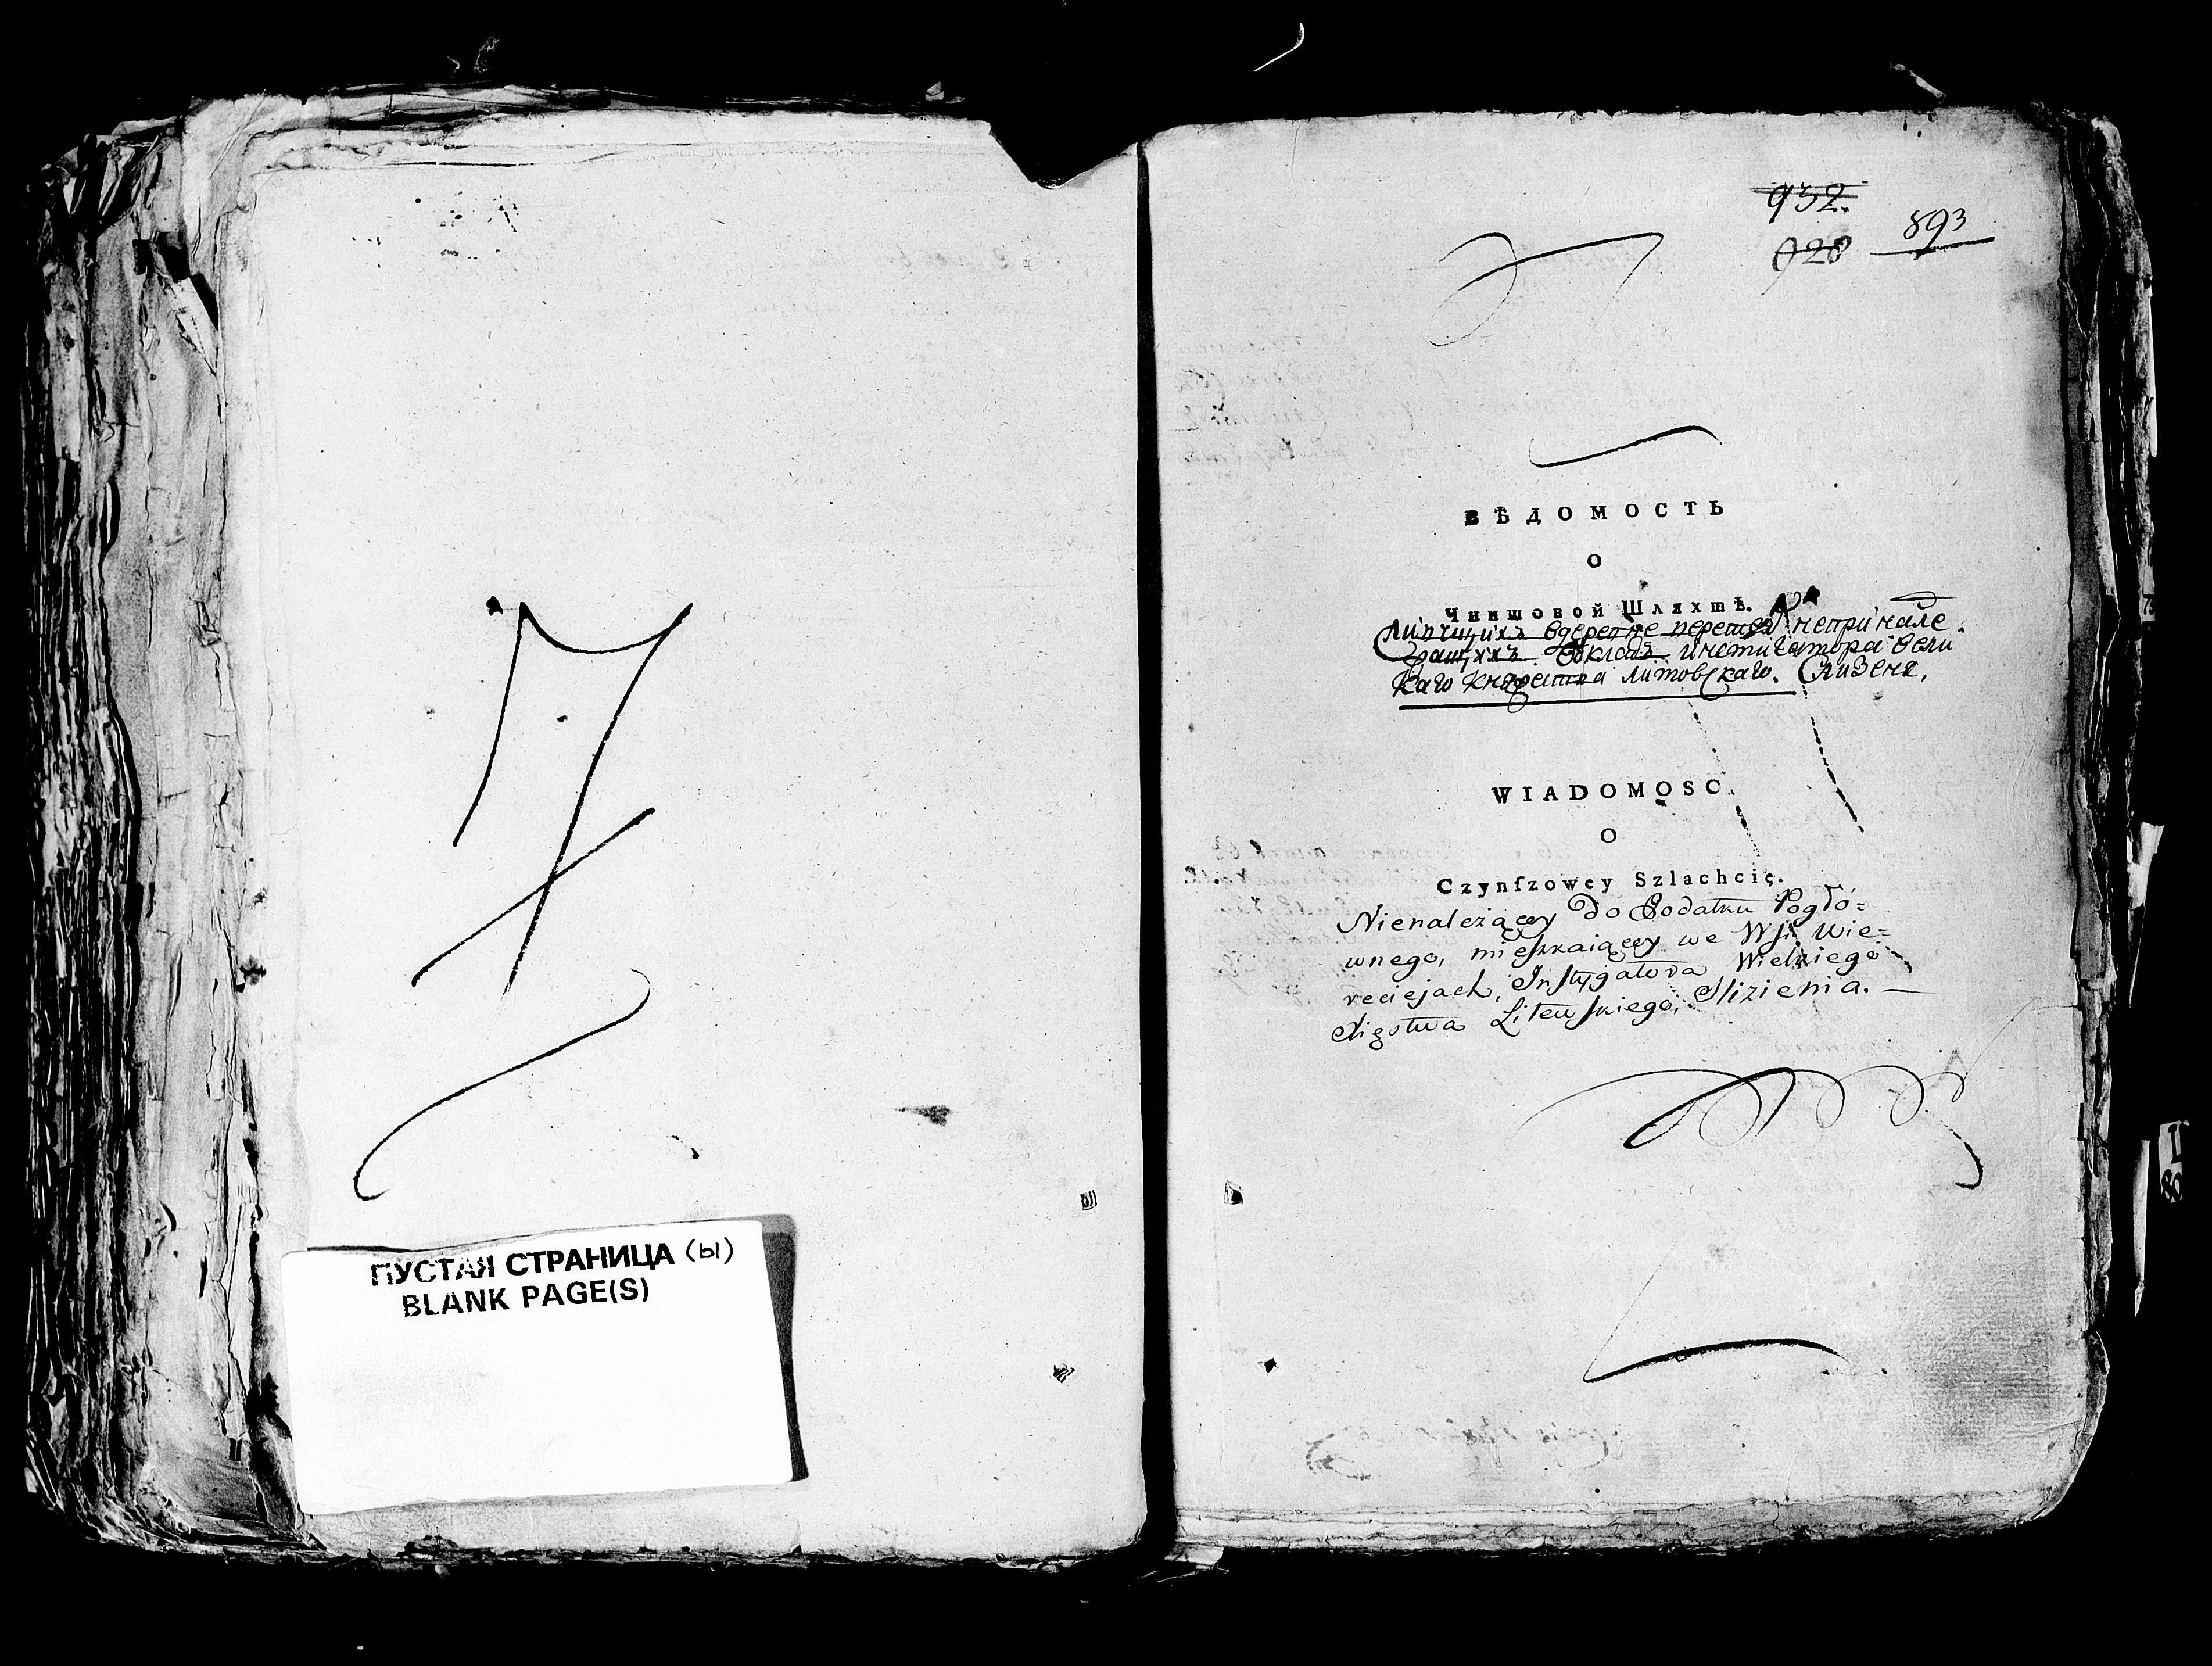 ПУСТАЯ СТРАНИЦА (ы)
BLANK PAGE(S)
932.
928
893
ВѢДОМОСТЬ
О
Чиншовой Шляхтѣ.
непринале
инстигатора вели
каго княжества литовскаго. Слизеня,
WIADOMOSC
O
Czynſzowey Szlachcie.
Nienależący do Podatku Pogłó=
wnego, mieſzkaiący we Wsi Wie=
reciejach, Inſtygatora Wielkiego
Xięstwa Litewſkiego, Slizienia. —